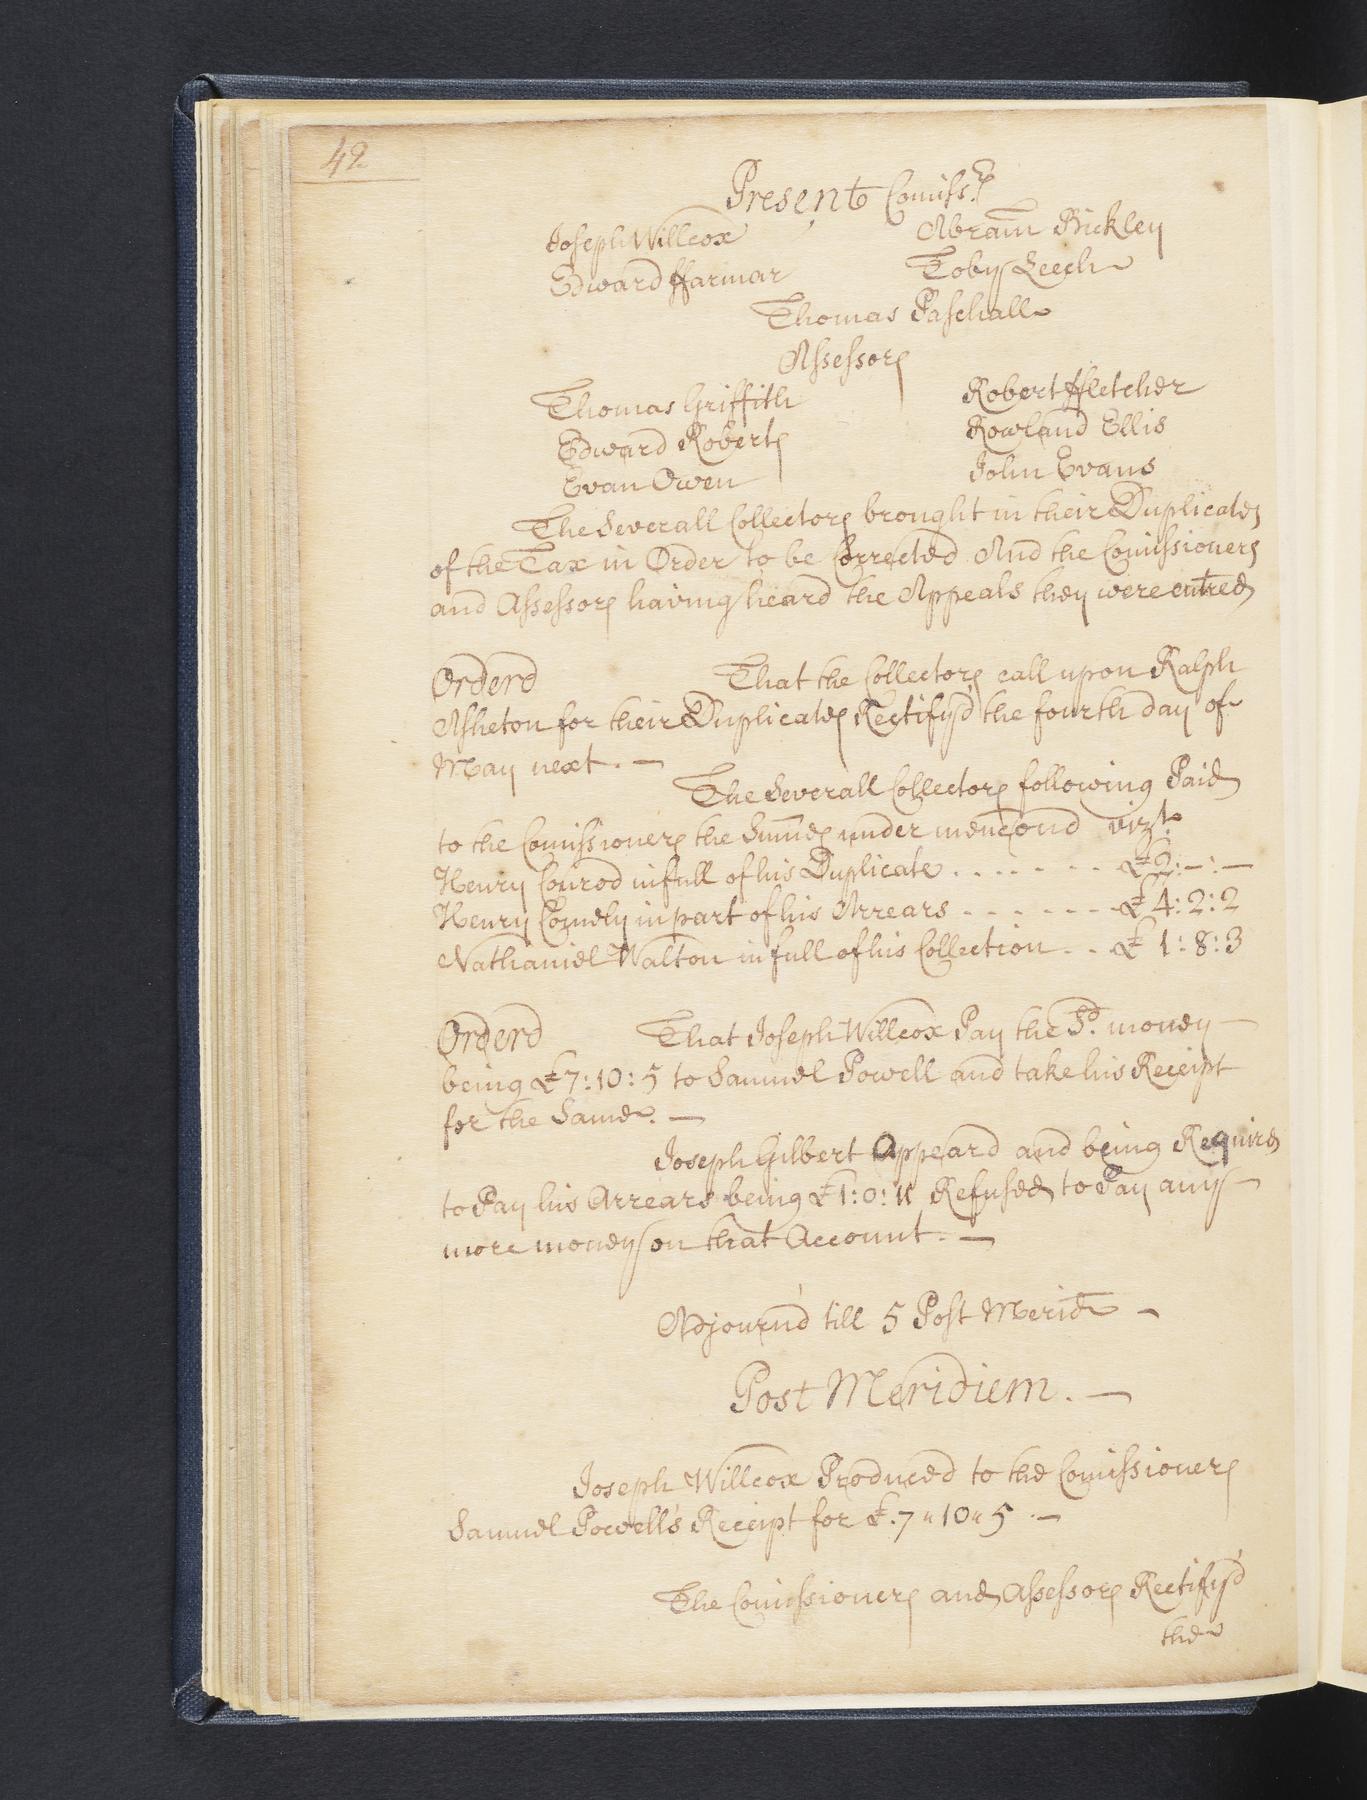 42
Present Comiss.rs
Joseph Willcox Abram Bickley
Edward ffarmar Toby Leech
Thomas Paschall
Assessors
Thomas Griffith Robert ffletcher
Edward Roberts Rowland Ellis
Evan Owen John Evans
The Severall Collectors brought in their Duplicates
of the Tax in Order to be Corrected And the Comissioners
and Assessors having heard the Appeals they were entred
Orderd That the Collectors call upon Ralph
Asheton for their Duplicates Rectify'd the fourth day of
May next. —
The Severall Collectors following Paid
to the Comissioners the Summes under menconed vizt.
Henry Conrod in full of his Duplicate . . . . . . . £2:—:—
Henry Comely in part of his Arrears . . . . . . . £4:2:2
Nathaniel Walton in full of his Collection . . £ 1:8:3
Orderd That Joseph Willcox Pay the Sd. money —
being £7:10:5 to Samuel Powell and take his Receipt
for the Same. —
Joseph Gilbert Appeard and being Required
to Pay his Arrears being £1:0:11 Refused to Pay any —
more money on that Account. —
Adjourn'd till 5 Post Merid —
Post Meridiem. —
Joseph Willcox Produced to the Comissioners
Samuel Powell's Receipt for £.7"10"5 —
The Comissioners and Assessors Rectify'd
the